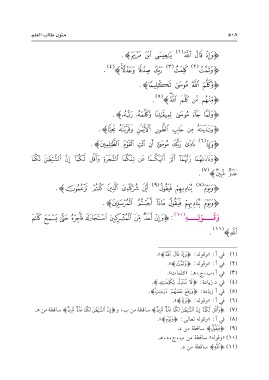 ٥٠٨ متون طالب العلم
﴿وَإِذْ قَالَ ٱللَّهُ(١) يَٰعِيسَى ٱبْنَ مَرْيَمَ﴾.
﴿وَتَمَّتْ(٢) كَلِمَتُ(٣) رَبِّكَ صِدْقًا وَعَدْلًا﴾(٤).
﴿وَكَلَّمَ ٱللَّهُ مُوسَىٰ تَكْلِيمًا﴾.
﴿مِّنْهُم مَّن كَلَّمَ ٱللَّهُ﴾(٥).
﴿وَلَمَّا جَآءَ مُوسَىٰ لِمِيقَٰتِنَا وَكَلَّمَهُۥ رَبُّهُۥ﴾.
﴿وَنَٰدَيْنَٰهُ مِن جَانِبِ ٱلطُّورِ ٱلْأَيْمَنِ وَقَرَّبْنَٰهُ نَجِيًّا﴾.
﴿وَإِذْ(٦) نَادَىٰ رَبُّكَ مُوسَىٰٓ أَنِ ٱئْتِ ٱلْقَوْمَ ٱلظَّٰلِمِينَ﴾.
﴿وَنَادَىٰهُمَا رَبُّهُمَآ أَلَمْ أَنْهَكُمَا عَن تِلْكُمَا ٱلشَّجَرَةِ وَأَقُل لَّكُمَآ إِنَّ ٱلشَّيْطَٰنَ لَكُمَا
عَدُوٌّ مُّبِينٌ﴾(٧).
﴿وَيَوْمَ(٨) يُنَادِيهِمْ فَيَقُولُ(٩) أَيْنَ شُرَكَآءِىَ ٱلَّذِينَ كُنتُمْ تَزْعُمُونَ﴾.
﴿وَيَوْمَ يُنَادِيهِمْ فَيَقُولُ مَاذَآ أَجَبْتُمُ ٱلْمُرْسَلِينَ﴾.
وَقَـوْلِــهِ(١٠): ﴿وَإِنْ أَحَدٌ مِّنَ ٱلْمُشْرِكِينَ ٱسْتَجَارَكَ فَأَجِرْهُ حَتَّىٰ يَسْمَعَ كَلَٰمَ
ٱللَّهِ﴾(١١).
(١) في أ: «وقوله: ﴿وَإِذْ قَالَ ٱللَّهُ﴾».
(٢) في أ: «وقوله: ﴿وَتَمَّتْ﴾».
(٣) في أ، ب، ج، هـ: «كلمات».
(٤) في د زيادة: ﴿لَّا مُبَدِّلَ لِكَلِمَٰتِهِۦ﴾.
(٥) في أ زيادة: ﴿وَرَفَعَ بَعْضَهُمْ دَرَجَٰتٍ﴾.
(٦) في أ: «وقوله: ﴿وَإِذْ﴾».
(٧) ﴿وَأَقُل لَّكُمَآ إِنَّ ٱلشَّيْطَٰنَ لَكُمَا عَدُوٌّ مُّبِينٌ﴾ ساقطة من ب، و﴿إِنَّ ٱلشَّيْطَٰنَ لَكُمَا عَدُوٌّ مُّبِينٌ﴾ ساقطة من هـ.
(٨) في أ: «وقوله تعالى: ﴿وَيَوْمَ﴾».
(٩) ﴿فَيَقُولُ﴾ ساقطة من د.
(١٠) «وقوله» ساقطة من ب، ج، د، هـ.
(١١) ﴿ٱللَّهِ﴾ ساقطة من د.